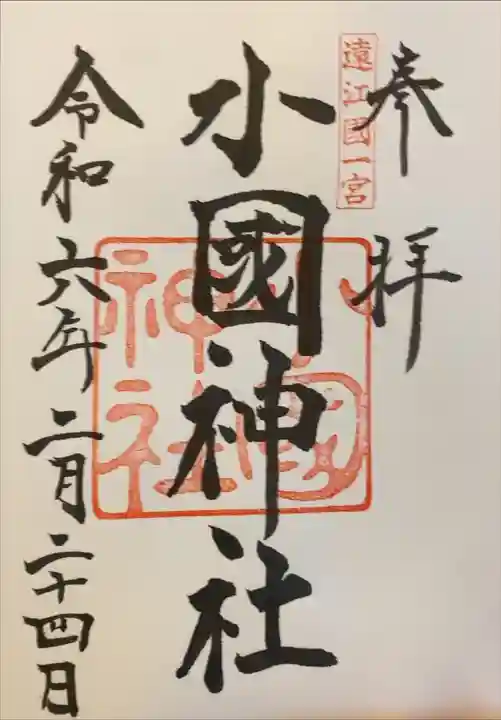 奉拝
遠江國一宮
小國神社
小國神社
令和六年二月二十四日